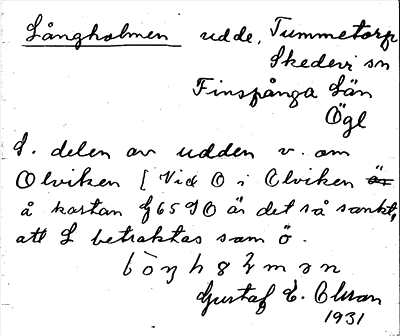 Långholmen udde, Tummetorp
Skedevi sn
Finspånga län
Ögl
S. delen av udden v. om
Olviken [Vid O i Olviken
å kartan G 65 SO är det så sankt,
att L betraktas som ö.
Gustaf E. Olsson
1931